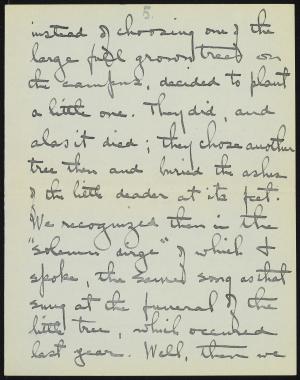 5.
instead of choosing one of the
large full grown trees on
the campus, decided to plant
a little one. They did, and
alas it died; they chose another
tree then and buried the ashes
of the little deader at its feet.
We recognized then in the
"solemn dirge" of which I
spoke, the same song as that
sung at the funeral of the
little tree, which occurred
last year. Well, then we